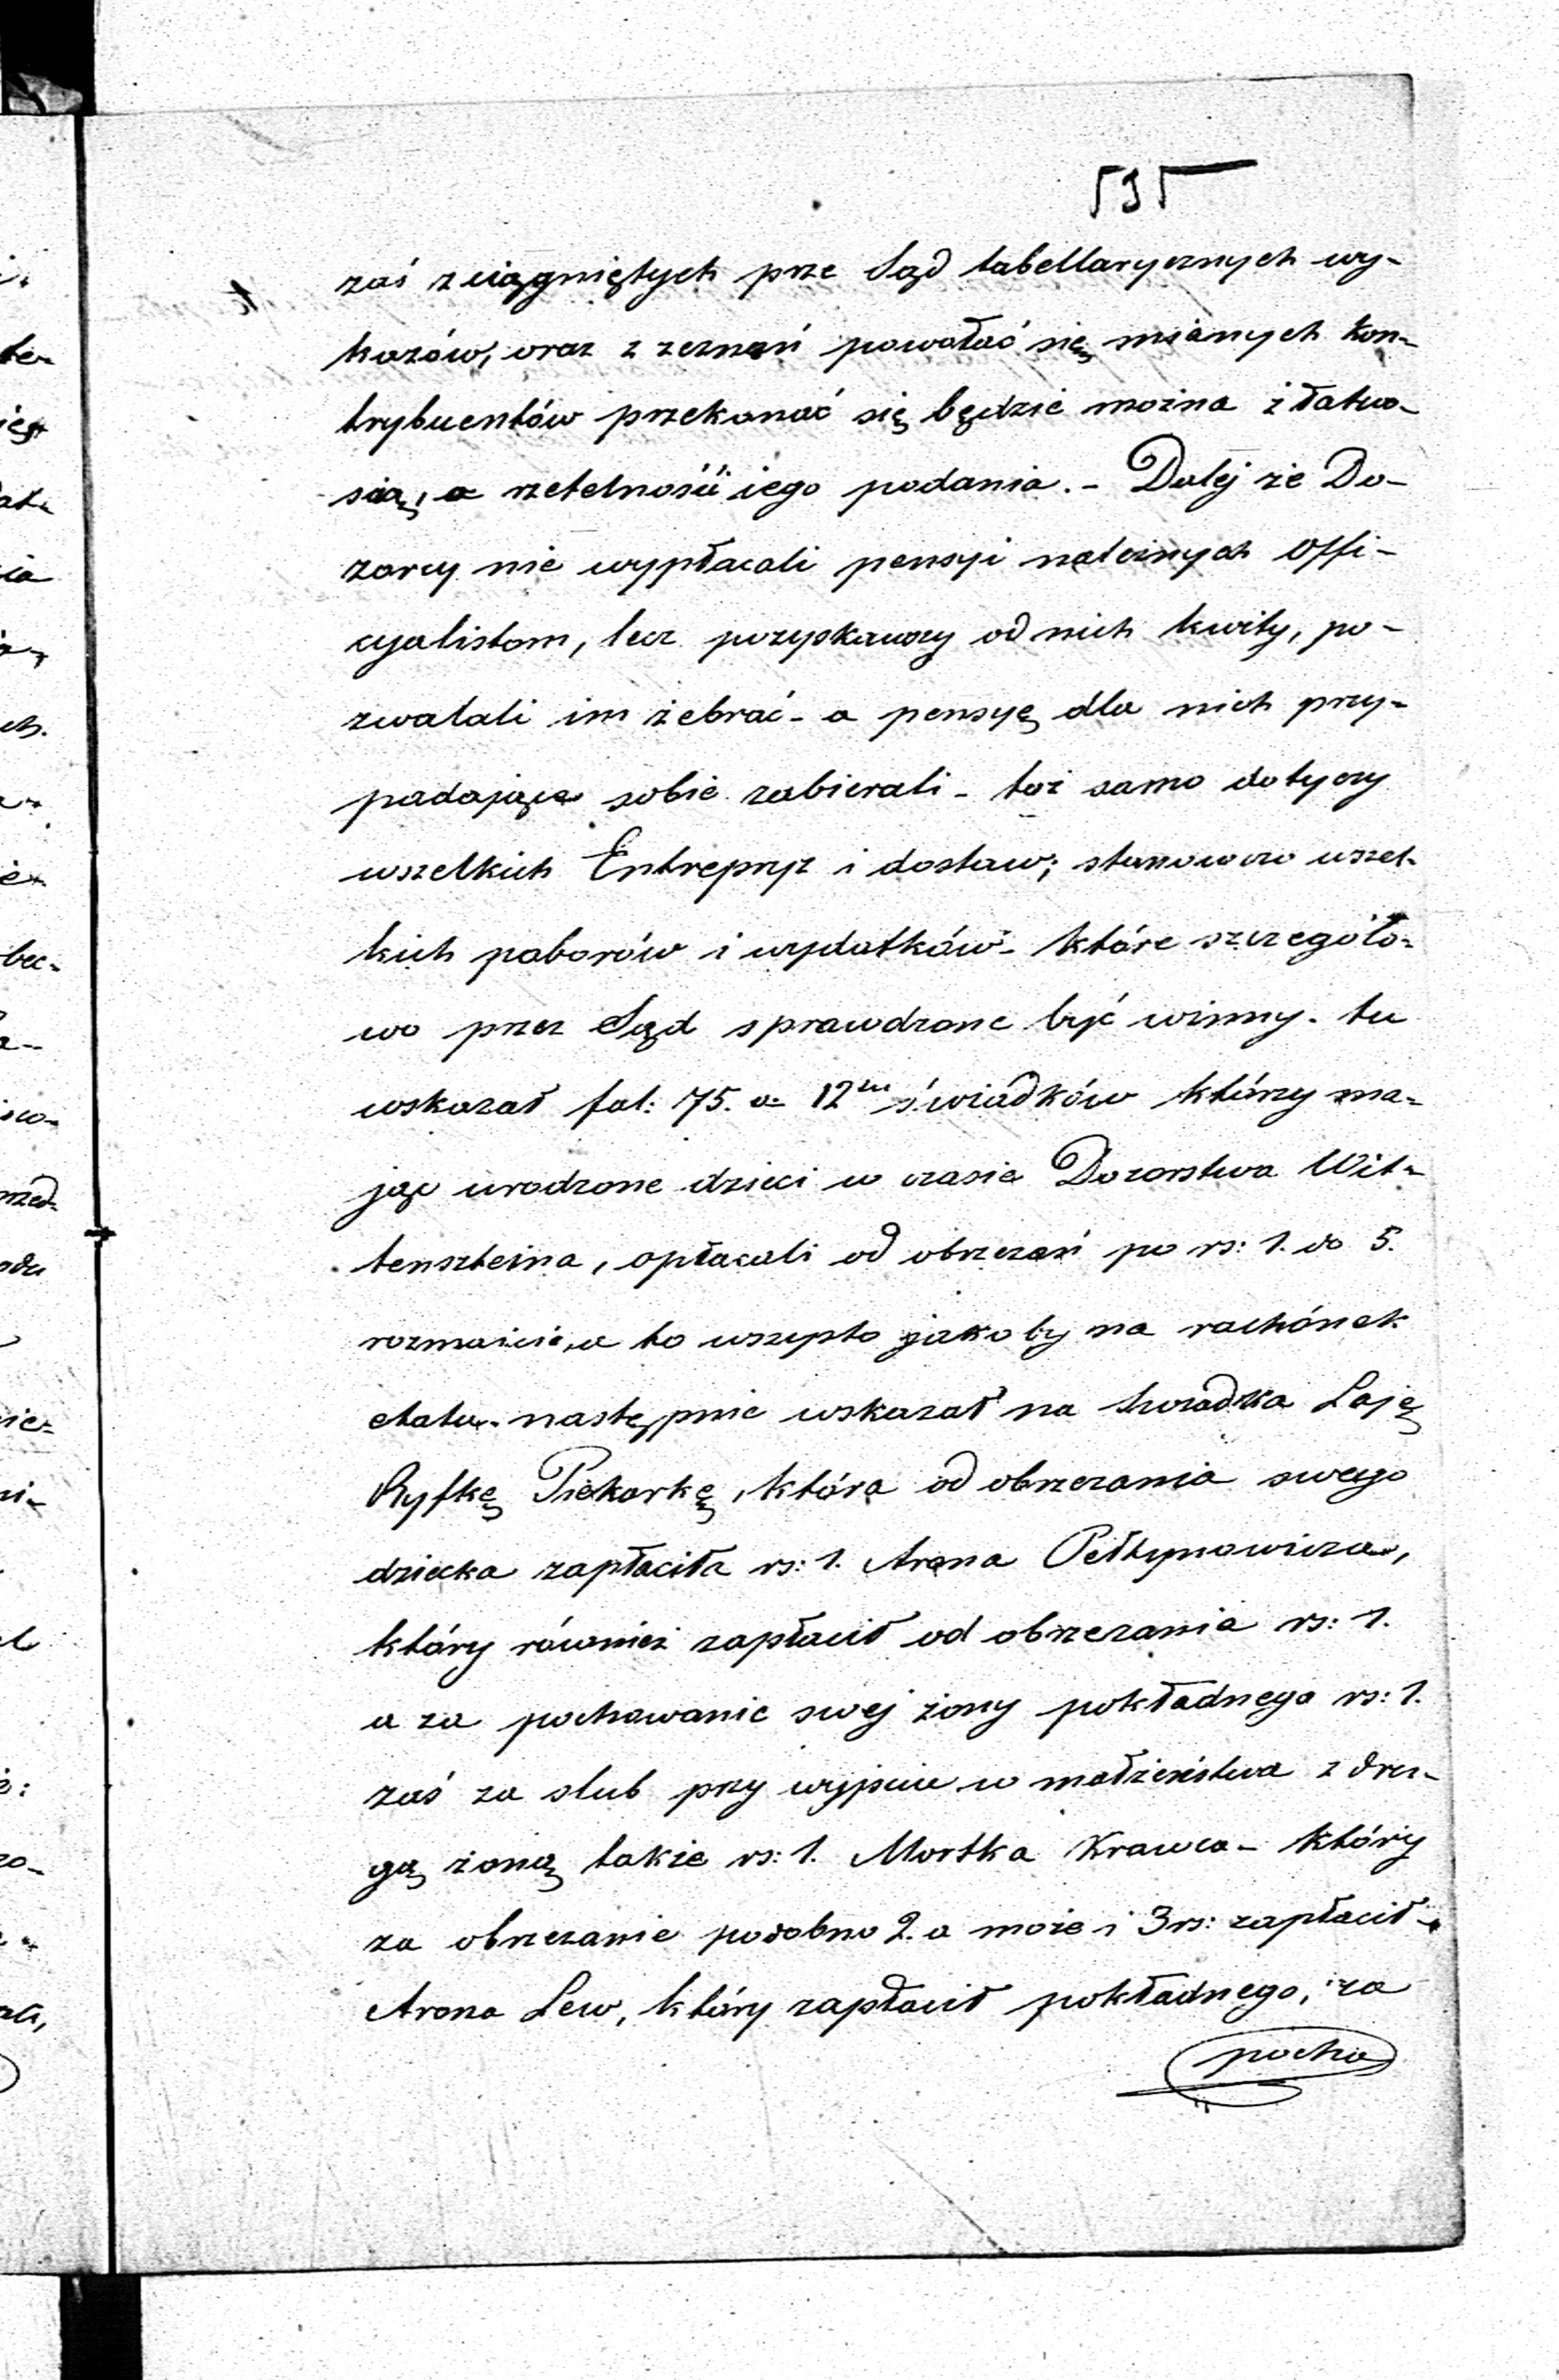 595
zaś zciągniętych prze Sąd tabellarycznych wy-
kazów, oraz z zeznań powołać się mianych kon-
trybuentów przekonać się będzie można z łatwo-
sią, o rzetelności iego podania. - Dalej że Do-
zorcy nie wypłacali pensyi należnych Offi-
cyalistom, lecz pozyskawszy od nich kwity, po-
zwalali im żebrać - a pensyę dla nich przy-
padające sobie zabierali - toż samo dotyczy
wszelkich Entrepryz i dostaw; stanowczo wszel-
kich poborów i wydatków - które szczegóło-
wo przez Sąd sprawdzone być winny. tu
wskazał fol: 75. a 12tu świadków którzy ma-
jąc urodzone dzieci w czasie Dozorstwa Wit-
tenszteina, opłacali od obrzezań po rs: 1. do 5.
rozmaicie, a to wszysto jakoby na rachónek
etatu. następnie wskazał na swiadka Łaję
Ryfkę Piekarkę, która od obrzezania swego
dziecka zapłaciła rs: 1. Arona Pełtynowicza,
który również zapłacił od obrzezania rs: 1.
a za pochowanie swej żony pokładnego rs: 1.
zaś za slub przy wyjsciu w małżeństwa z dru-
gą żoną także rs: 1. Mortka Krawca - który
za obrzezanie podobno 2. a może i 3 rs: zapłacił -
Arona Lew, który zapłacił pokładnego, za
pocho